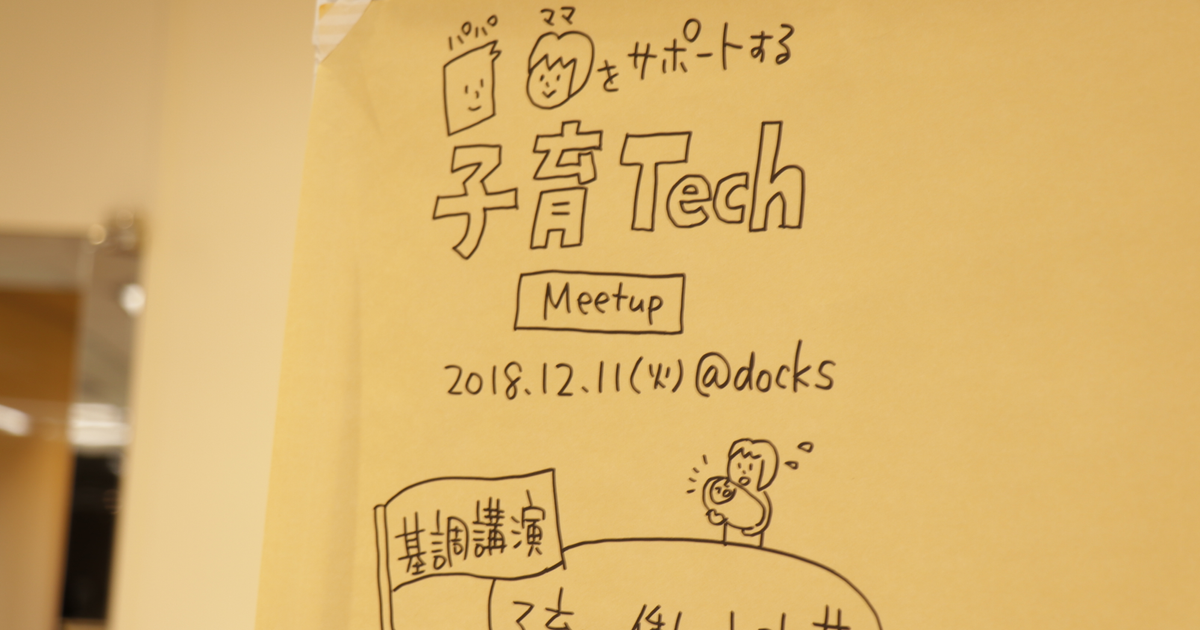 パパ ママをサポートする
子育Tech
Meetup
2018.12.11(火)@docks
基調講演